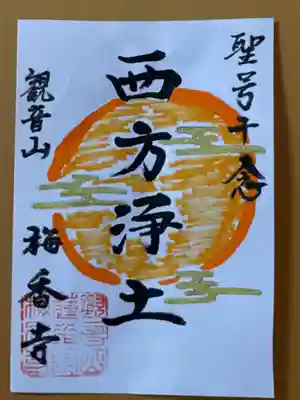 聖号十念
西方浄土
観音山
梅香寺